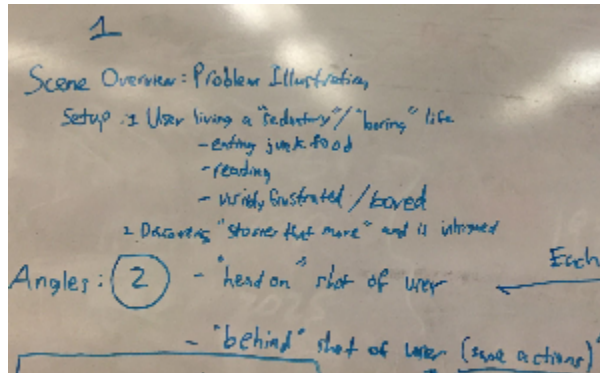 1
Scene Overview: Problem Illustration
Setup: 1 User living a "sedentary" / "boring" life
- eating junk food
- reading
- visibly frustrated / bored
2 Discovers "stories that move" and is intrigued
Angles: 2 - "head on" shot of user
Each
- "behind" shot of user (same actions)